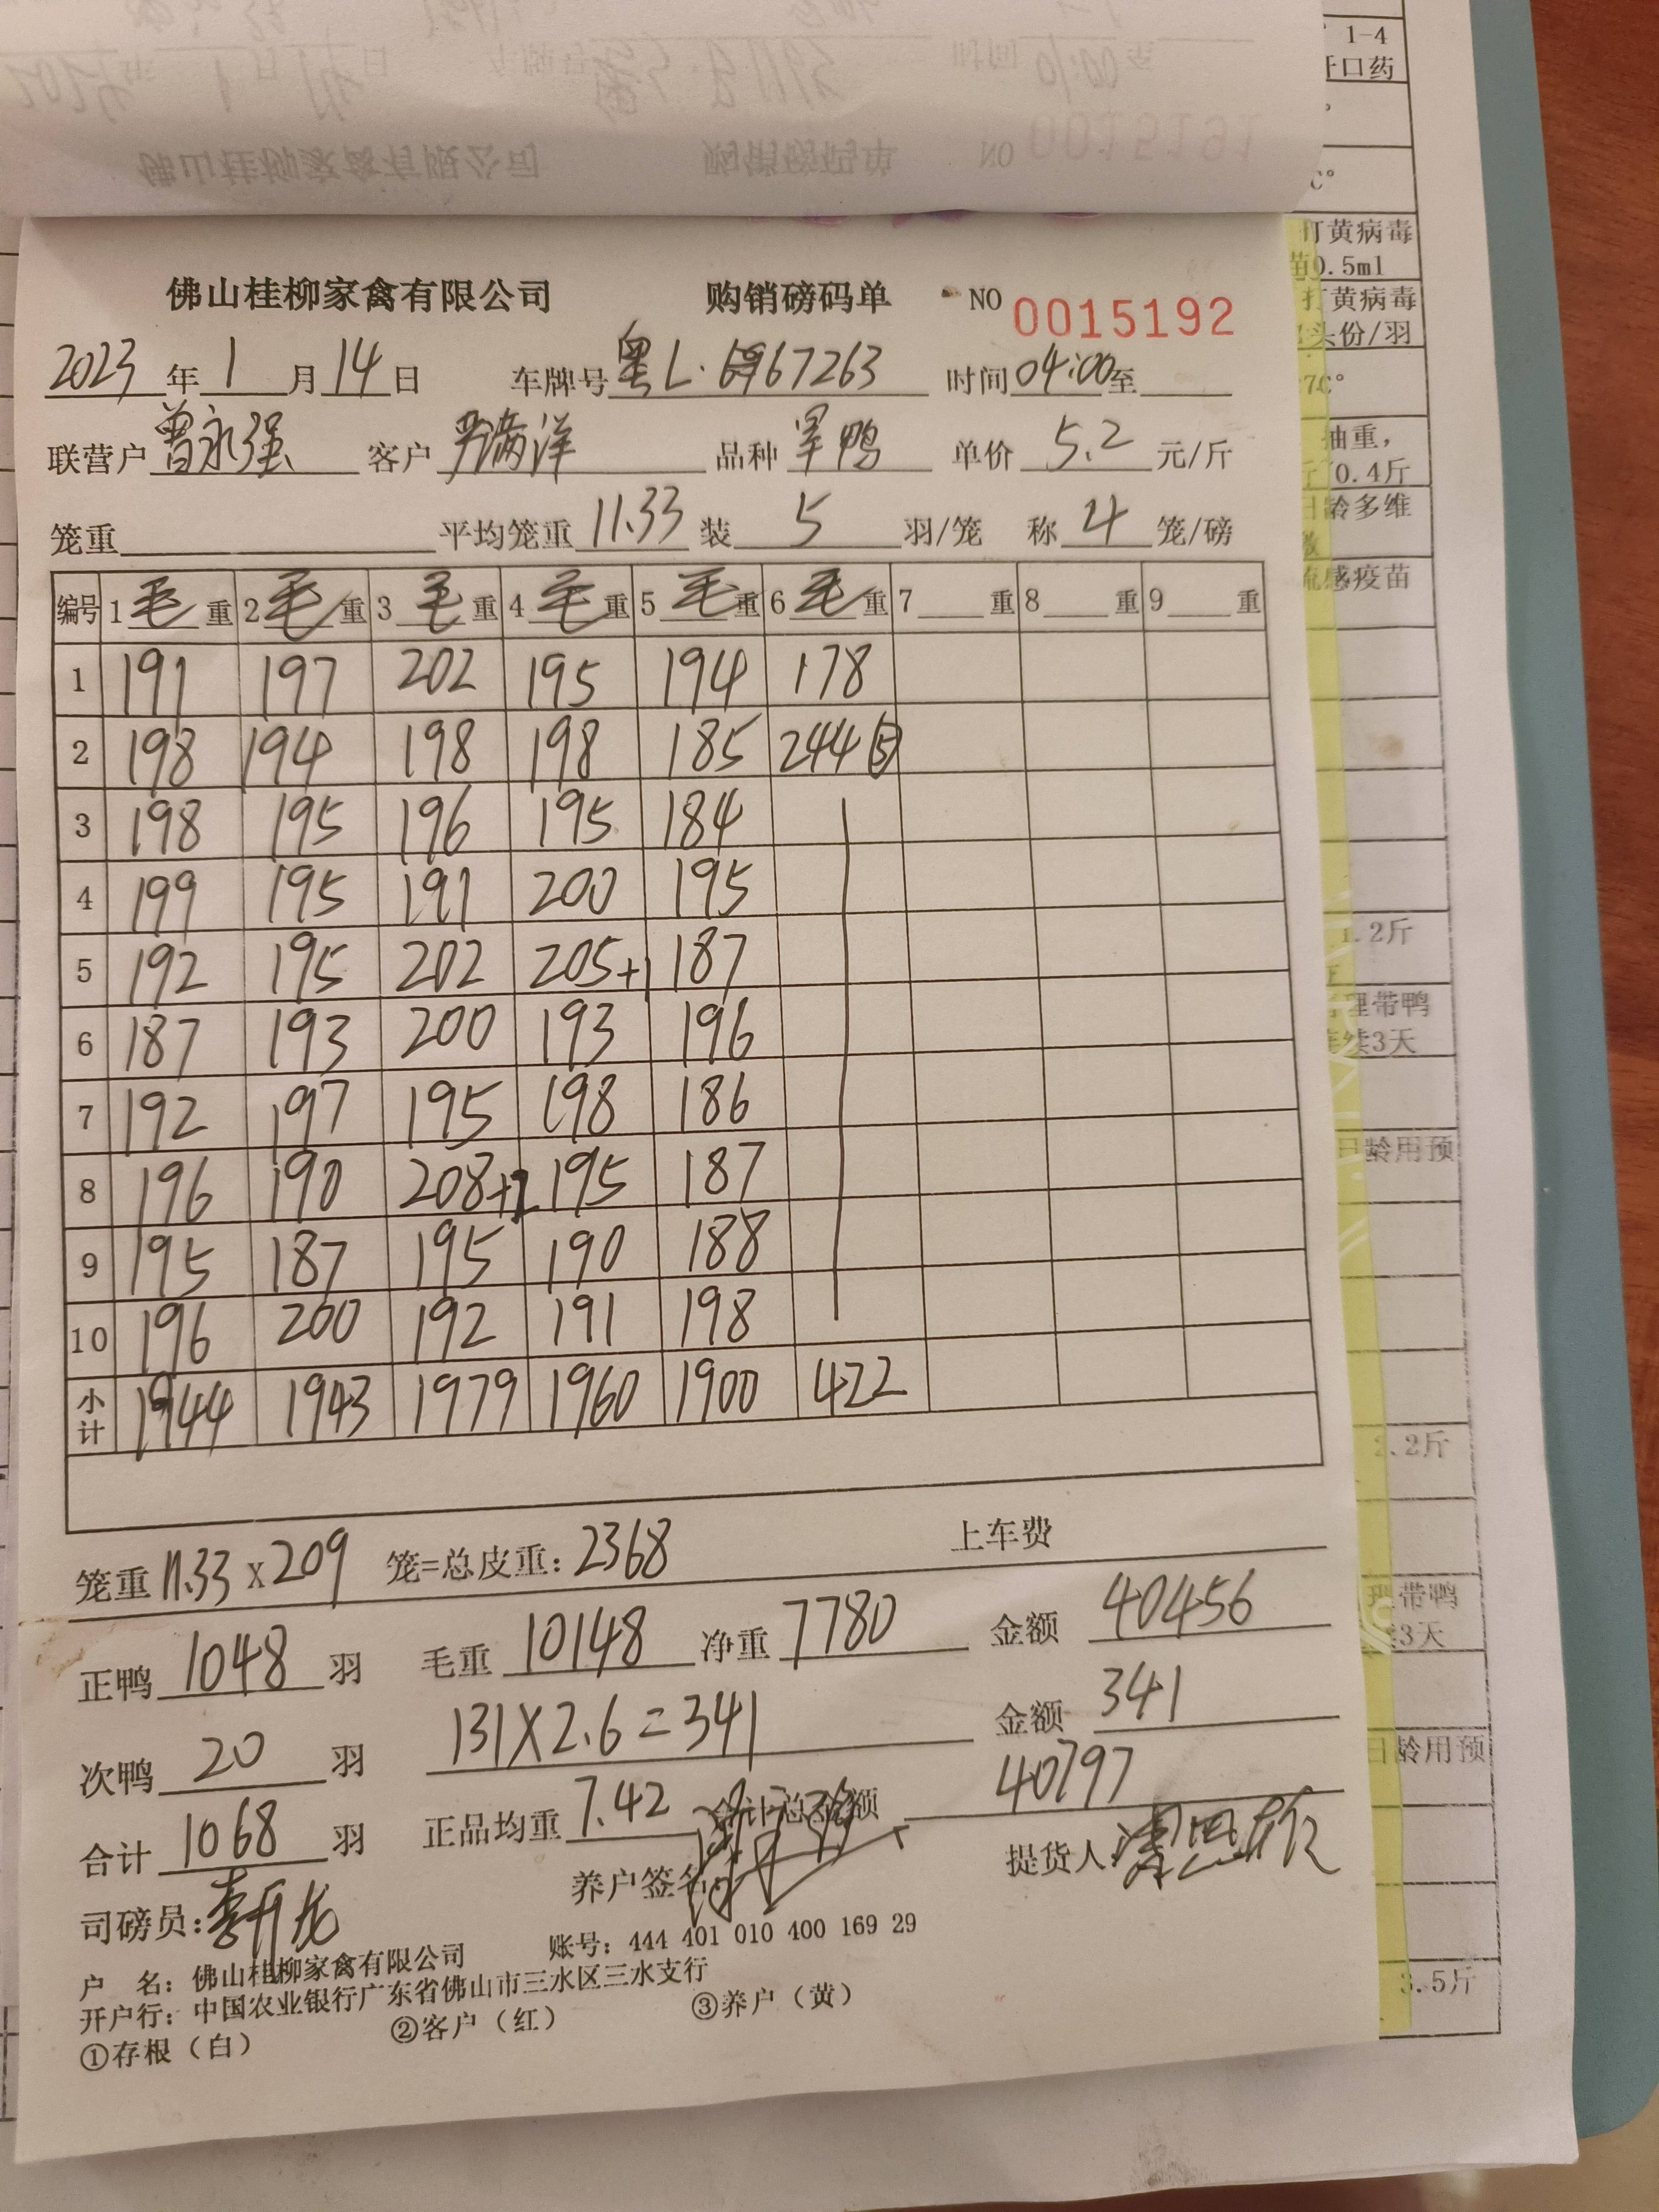 佛山桂柳家禽有限公司 购销磅码单 NO 0015192
2023年1月14日 车牌号粤L· 67263 时间04:00至
联营户曾永强 客户 满洋 品种旱鸭 单价5.2元/斤
笼重 平均笼重11.33装5羽/笼 称4笼/磅
编号 1毛重 2毛重 3毛重 4毛重 5毛重 6毛重 7重 8重 9重
1 191 197 202 195 194 178
2 198 194 198 198 185 244⑤
3 198 195 196 195 184
4 199 195 191 200 195
5 192 195 202 205+1 187
6 187 193 200 193 196
7 192 197 195 198 186
8 196 190 208+2 195 187
9 195 187 195 190 188
10 196 200 192 191 198
小计 1944 1943 1979 1960 1900 422
笼重11.33×209笼=总皮重:2368 上车费
正鸭1048羽 毛重10148净重7780 金额40456
次鸭20羽 131×2.6=341 金额341
合计1068羽 正品均重7.42 合计总金额 40797
司磅员: 养户签名: 提货人
户 名:佛山桂柳家禽有限公司 账号:444 401 010 400 169 29
开户行:中国农业银行广东省佛山市三水区三水支行
①存根(白) ②客户(红) ③养户(黄)
1-4
开口药
C°
打黄病毒
苗0.5ml
打黄病毒
头份/羽
7C°
抽重,
斤 0.4斤
日龄多维
流感疫苗
1.2斤
理带鸭
连续3天
日龄用预
2.2斤
理带鸭
3天
日龄用预
3.5斤